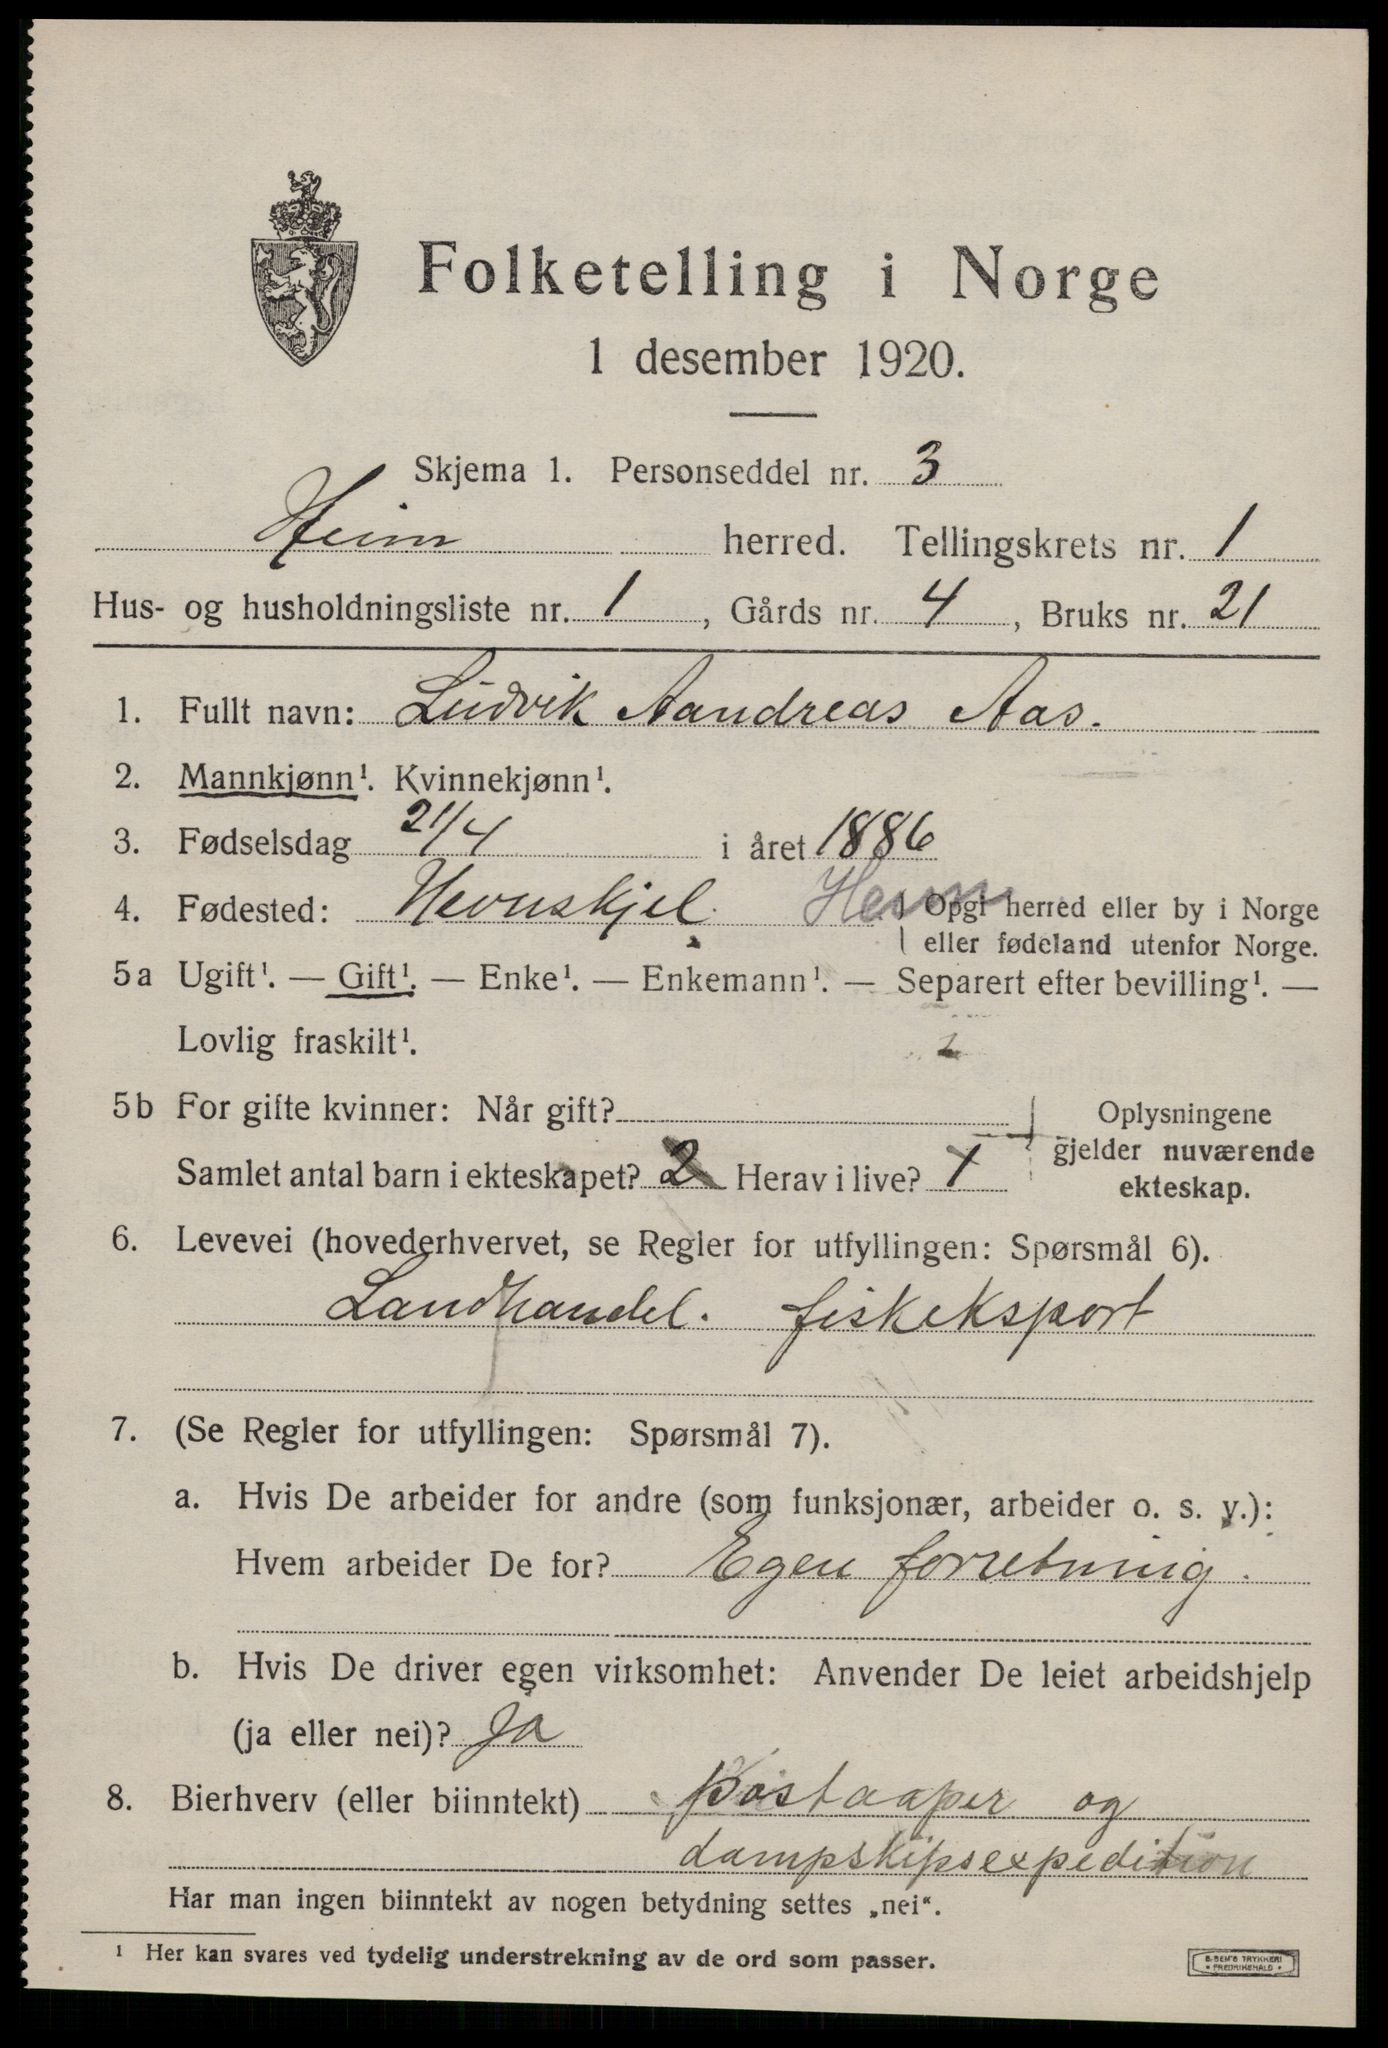 Folketelling i Norge
1 desember 1920.
Skjema 1. Personseddel nr. 3
Heim herred. Tellingskrets nr. 1
Hus- og husholdningsliste nr. 1, Gårds nr. 4, Bruks nr. 21
1. Fullt navn: Ludvik Aandreas Aas.
2. Mannkjønn¹. Kvinnekjønn¹.
3. Fødselsdag 21/4 i året 1886
4. Fødested: Hevnskjel. Heim Opgi herred eller by i Norge
eller fødeland utenfor Norge.
5a Ugift¹. — Gift¹. — Enke¹. — Enkemann¹. — Separert efter bevilling¹. —
Lovlig fraskilt¹.
5b For gifte kvinner: Når gift? Oplysningene
gjelder nuværende
Samlet antal barn i ekteskapet? 2 Herav i live? 1 ekteskap.
6. Levevei (hovederhvervet, se Regler for utfyllingen: Spørsmål 6).
Landhandel. fiskeksport
7. (Se Regler for utfyllingen: Spørsmål 7).
a. Hvis De arbeider for andre (som funksjonær, arbeider o. s. v.):
Hvem arbeider De for? Egen forretning.
b. Hvis De driver egen virksomhet: Anvender De leiet arbeidshjelp
(ja eller nei)? Ja
8. Bierhverv (eller biinntekt) postaaper og
dampskipsexpedition
Har man ingen biinntekt av nogen betydning settes „nei“.
¹ Her kan svares ved tydelig understrekning av de ord som passer.